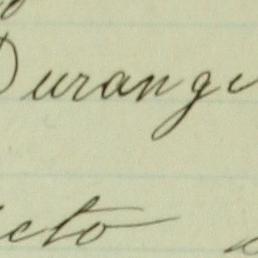 Durang
cto